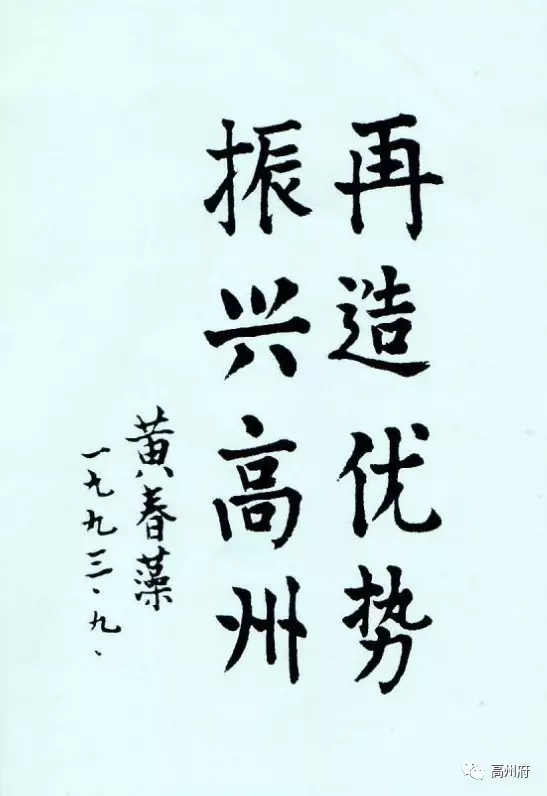 再造优势
振兴高州
黄春藻
一九九三·九、
高州府